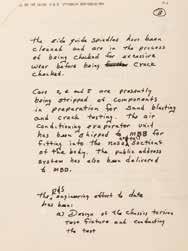 the side guide spindles have been
cleaned and are in the process
of being checked for excessive
wear before being crack
checked.
Cars 2, 4 and 5 are presently
being stripped of components
in preparation for sand blasting
and crack testing. The air
conditioning evaporator unit
has been shipped to MBB for
fitting into the nose sections
of the body. The public address
system has also been delivered
to MBB.
The engineering effort to date
has been:
a) Design of the chassis torsion
test fixture and conducting
the test